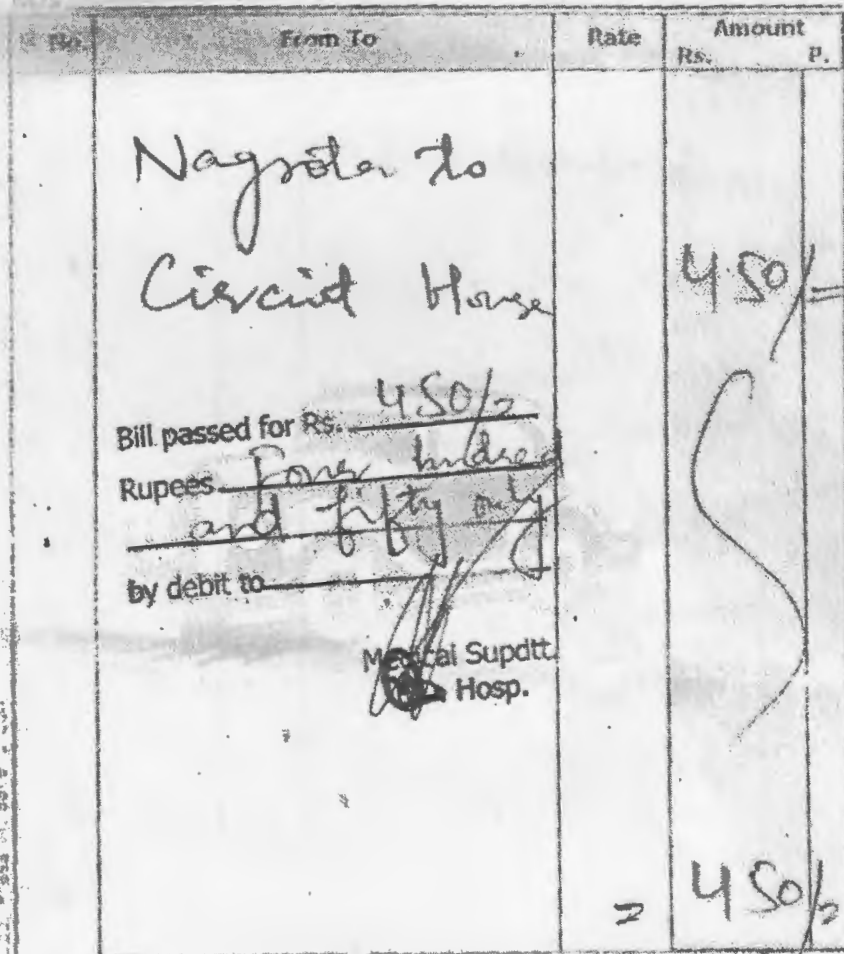 No. From To Rate Amount
Rs. P.
Nagrota to
Circuit House 450/=
Bill passed for Rs. 450/=
Rupees Four hundred
and fifty only
by debit to
Medical Supdtt.
Hosp.
= 450/=